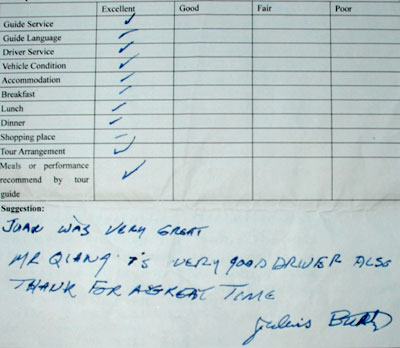 Excellent Good Fair Poor
Guide Service
Guide Language
Driver Service
Vehicle Condition
Accommodation
Breakfast
Lunch
Dinner
Shopping place
Tour Arrangement
Meals or performance
recommend by tour
guide
Suggestion:
JUAN WAS VERY GREAT
MR QIANG IS VERY GOOD DRIVER ALSO
THANK FOR A GREAT TIME
Julius